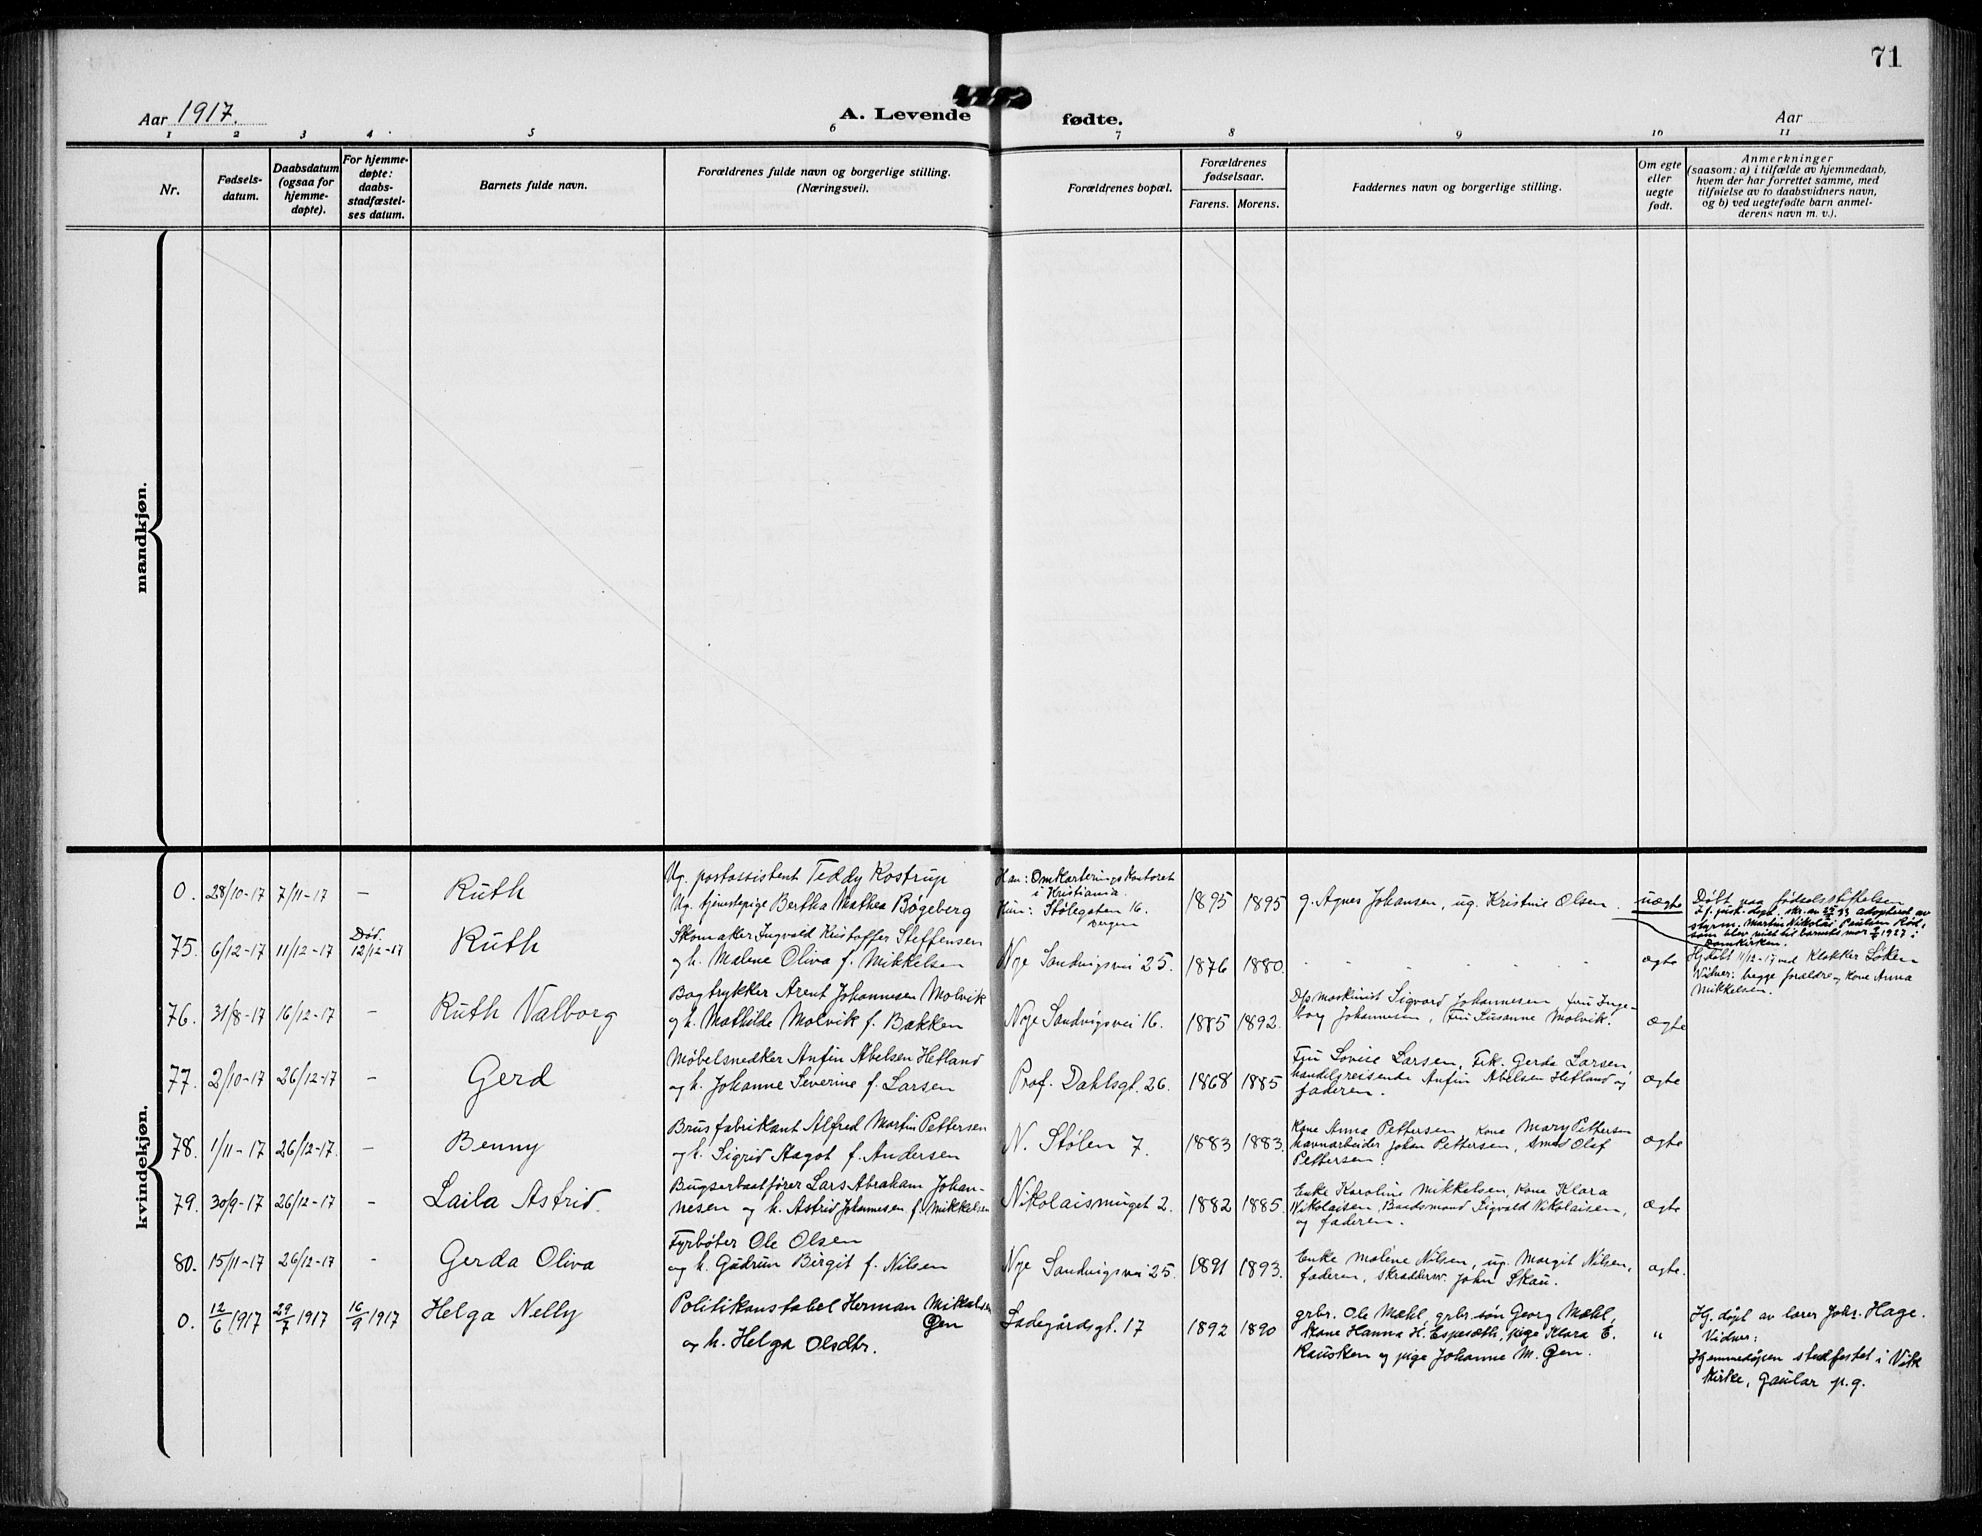 71
Aar 1917.
A. Levende fødte.
Aar
1 2 3 4 5 6 7 8 9 10 11
Nr.
Fødsels-
datum.
Daabsdatum
(ogsaa for
hjemme-
døpte).
For hjemme-
døpte:
daabs-
stadfæstel-
ses datum.
Barnets fulde navn.
Forældrenes fulde navn og borgerlige stilling.
(Næringsvei).
Forældrenes bopæl.
Forældrenes
fødselsaar.
Farens. Morens.
Faddernes navn og borgerlige stilling.
Om egte
eller
uegte
født.
Anmerkninger
(saasom: a) i tilfælde av hjemmedaab,
hvem der har forrettet samme, med
tilføielse av to daabsvidners navn,
og b) ved uegtefødte barn anmel-
derens navn m. v.).
mandkjøn.
kvindekjøn.
0. 28/10-17 7/11-17 – Ruth
Ug. postassistent Teddy Kostrup
Ug. tjenestepige Bertha Mathea Bøgeberg
Han: Omkarteringskontoret
i Kristiania.
Hun: Stølegaten 16.
Bergen
1895 1895 g. Agnes Johansen, ug. Kristine Olsen. uægte
Døbt paa fødselsstiftelsen
If. just.dept. skr. av adopteret av
styrm. Martin Nikolai Paulsen Rød,
som blev viet til barnets mor 1927 i
Domkirken.
75. 6/12-17 11/12-17 Død 12/12-17 Ruth
Skomaker Ingvald Kristoffer Steffensen
og h. Malene Oliva f. Mikkelsen
Nye Sandvigsvei 25. 1876 1880. ægte
Hj.døbt 11/12-17 ved Klokker Søken
Vidner: begge forældre og kone Anna
Mikkelsen.
76. 31/8-17 16/12-17 – Ruth Valborg
Bogtrykker Arent Johannesen Molvik
og h. Mathilde Molvik f. Bakken
Nye Sandvigsvei 16. 1885 1892.
D/s maskinist Sigvard Johannesen, fru Inge-
borg Johannesen, Fru Susanne Molvik. ægte
77. 2/10-17 26/12-17 – Gerd
Møbelsnedker Anfin Abelsen Hetland
og h. Johanne Severine f. Larsen
Prof. Dahlsgt. 26. 1868 1885
Fru Lovise Larsen, Frk. Gerda Larsen,
handelsreisende Anfin Abelsen Hetland og
faderen. ægte
78. 1/11-17 26/12-17. – Benny
Brusfabrikant Alfred Martin Pettersen
og h. Sigrid Aagot f. Andersen
N. Stølen 7. 1883 1883.
Kone Anna Pettersen, kone Mary Pettersen
havnarbeider Johan Pettersen, smed Olef
Pettersen. ægte
79. 30/9-17 26/12-17 – Laila Astrid.
Bugserbaatfører Lars Abraham Johan-
nesen og h. Astrid Johannesen f. Mikkelsen
Nikolaismuget 2. 1882 1885.
Enke Karoline Mikkelsen, kone Klara
Nikolaisen, Baadsmand Sigvald Nikolaisen,
og faderen. ægte
80. 15/11-17 26/12-17 – Gerda Oliva
Fyrbøter Ole Olsen
og h. Gudrun Birgit f. Nilsen
Nye Sandvigsvei 25. 1891 1893.
Enke Malene Nilsen, ug. Margit Nilsen,
faderen, skrædder John Skau. ægte.
0. 12/6 1917 29/7 1917 16/9 1917 Helga Nelly
Politikonstabel Herman Mikalsen
Øen
og h. Helga Olsdtr.
Ladegårdsgt. 17 1892 1890
grbr. Ole Mæhl, grbr.søn Georg Mæhl,
Kone Hanna H. Espesæth, pige Klara E.
Kausken og pige Johanne M. Øen. "
Hj. døpt av lærer Johs. Hage.
Vidner:
Hjemmedåpen stadfestet i Vik
kirke, Gaular p.g.